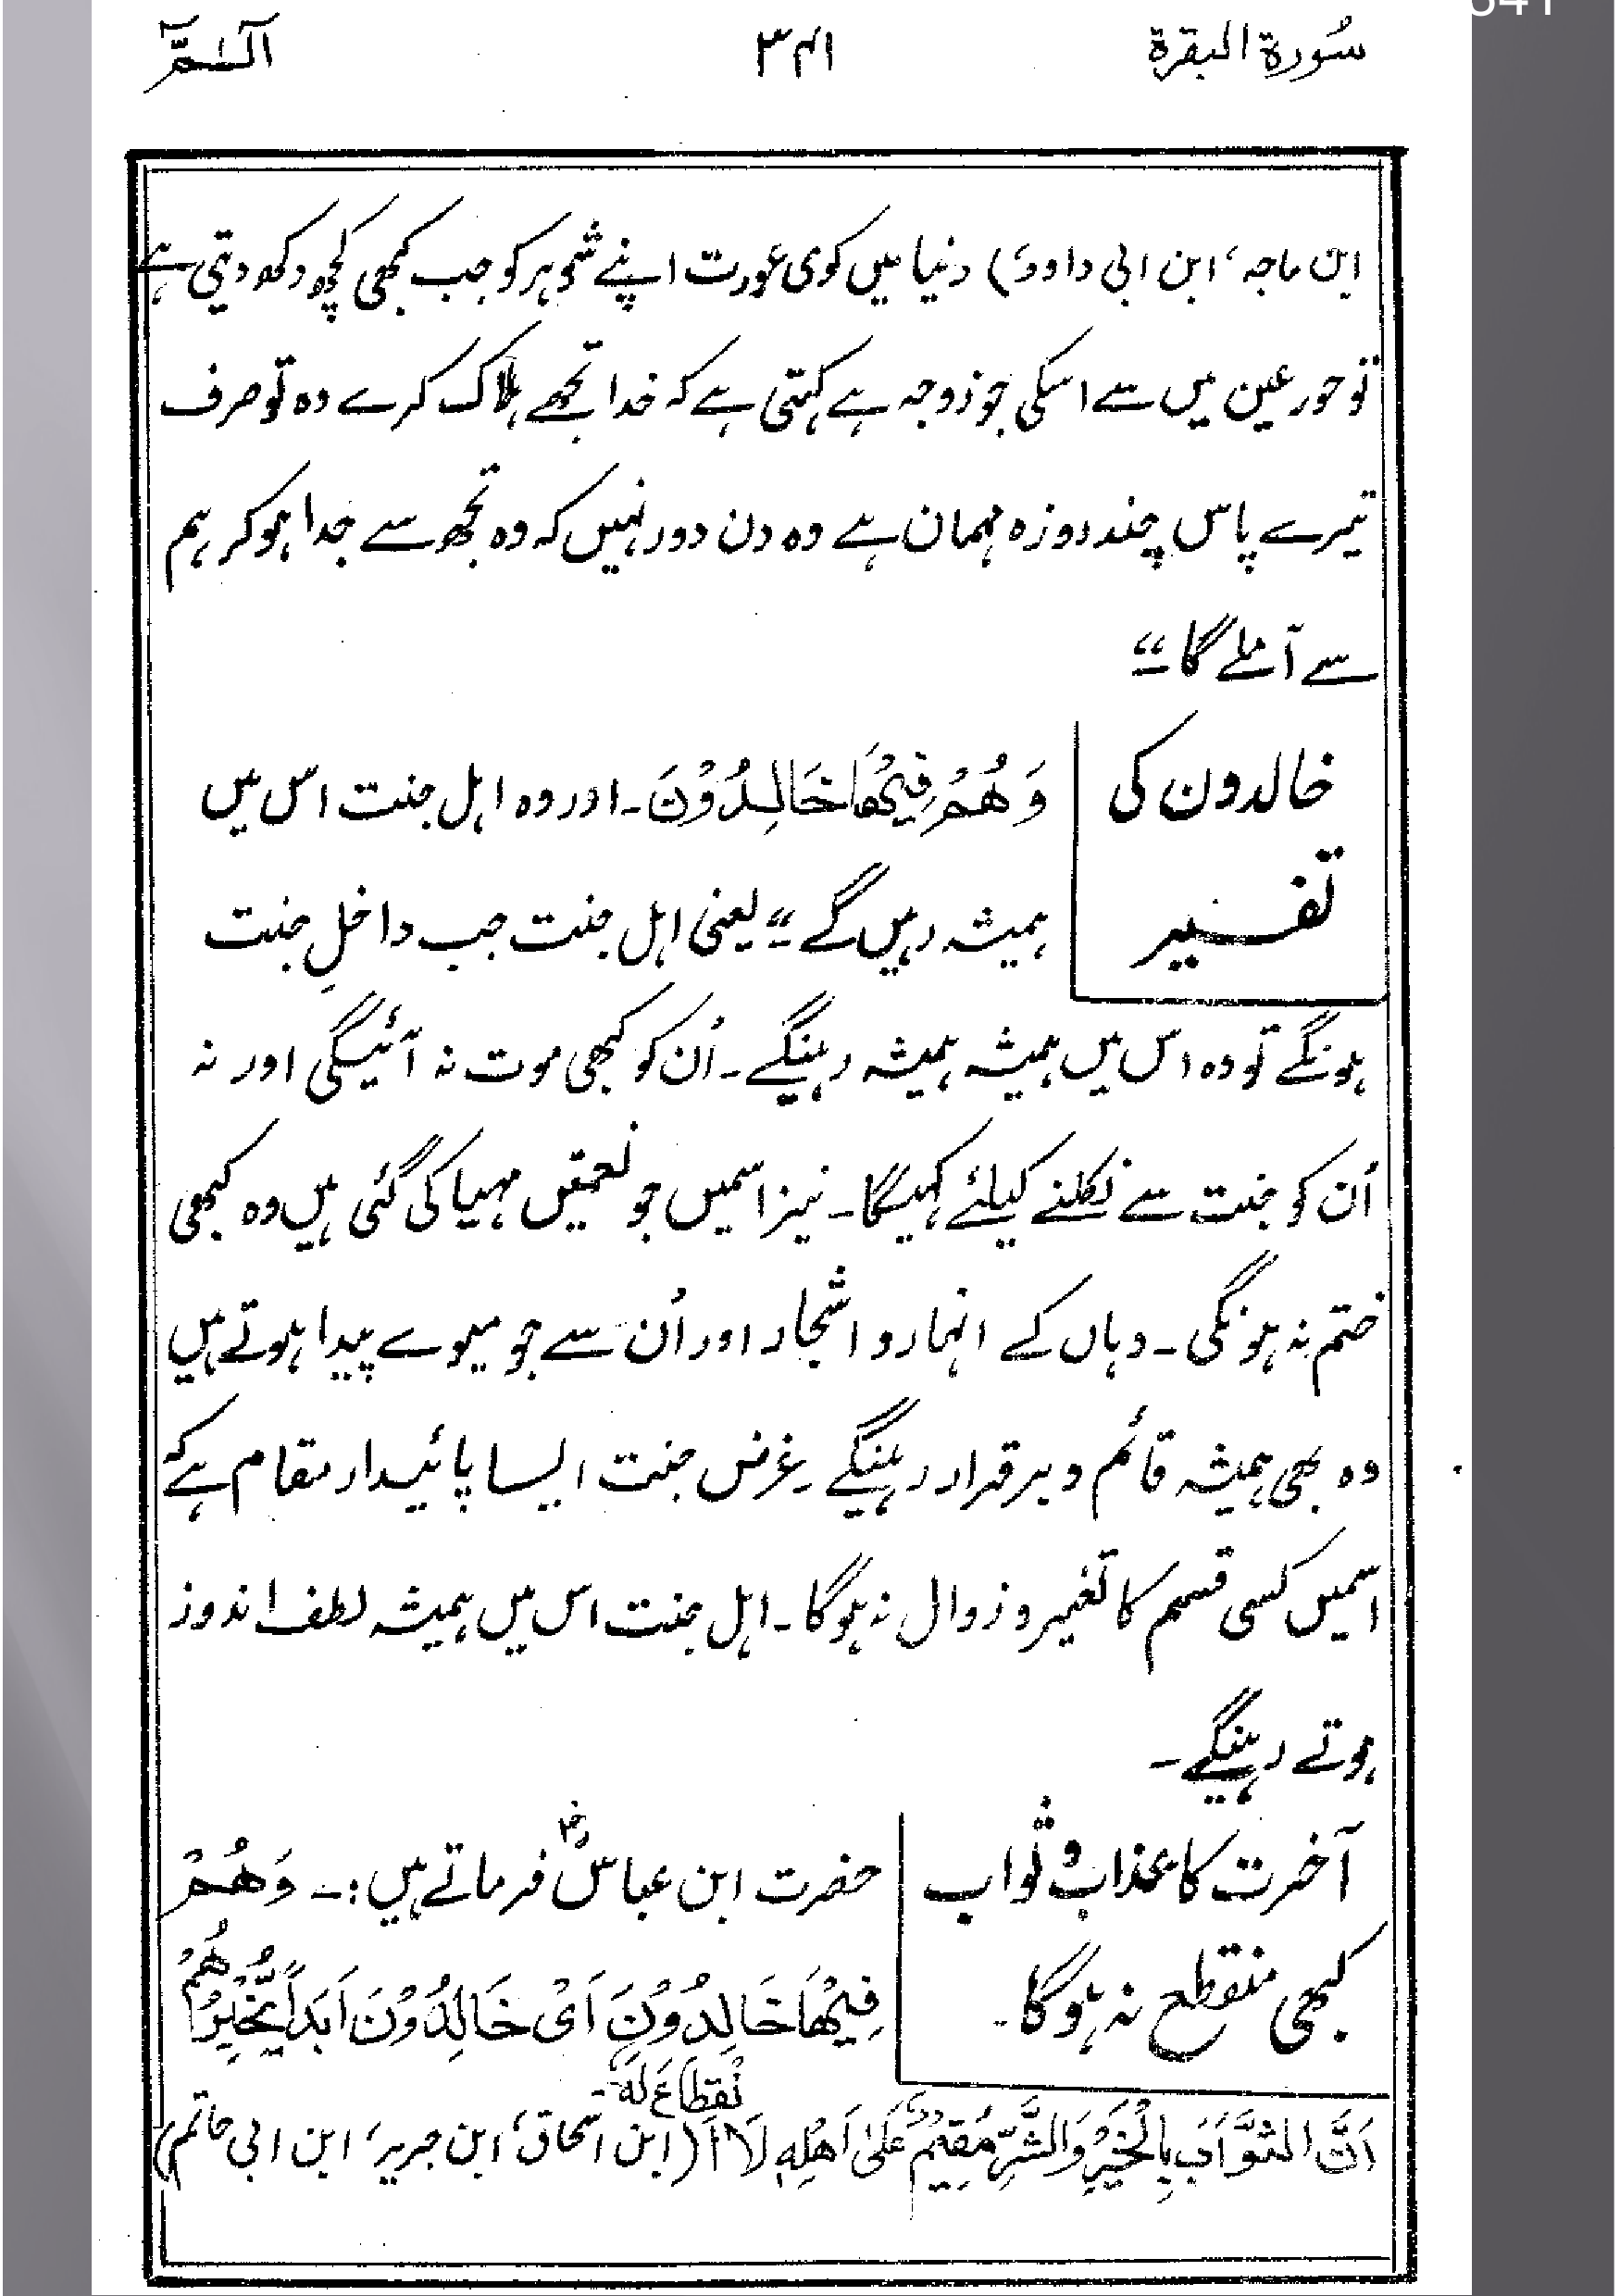 سُورۃ البقرۃ
۳۴۱
الٓـمّٓ
ابن ماجہ، ابن ابی داوٗد) دنیا میں کوی عورت اپنے شوہر کو جب کبھی کچھ دکھ دیتی ہے
تو حور عین میں سے اسکی جو زوجہ ہے کہتی ہے کہ خدا تجھے ہلاک کرے وہ تو صرف
تیرے پاس چند روزہ مہمان ہے وہ دن دور نہیں کہ وہ تجھ سے جدا ہوکر ہم
سے آملے گا۔“
خالدون کی
تفسیر
وَھُمْ فِیْھَا خَالِدُوْنَ۔ اور وہ اہل جنت اس میں
ہمیشہ رہیں گے۔“ یعنی اہل جنت جب داخلِ جنت
ہونگے تو وہ اس میں ہمیشہ ہمیشہ رہینگے۔ اُن کو کبھی موت نہ آئیگی اور نہ
اُن کو جنت سے نکلنے کیلئے کہیگا۔ نیز اسمیں جو نعمتیں مہیا کی گئی ہیں وہ کبھی
ختم نہ ہونگی۔ وہاں کے انہار و اشجار اور اُن سے جو میوے پیدا ہوتے ہیں
وہ بھی ہمیشہ قائم و برقرار رہینگے۔ غرض جنت ایسا پائیدار مقام ہے کہ
اسمیں کسی قسم کا تغیر و زوال نہ ہوگا۔ اہل جنت اس میں ہمیشہ لطف اندوز
ہوتے رہینگے۔
آخرت کا عذاب و ثواب
کبھی منقطع نہ ہوگا۔
حضرت ابن عباسؓ فرماتے ہیں:۔ وَھُمْ
فِیْھَا خَالِدُوْنَ اَیْ خَالِدُوْنَ اَبَداً یُّخْبِرُھُمْ
اَنَّ الثَّوَابَ بِالْخَیْرِ وَالشَّرِّ مُقِیْمٌ عَلیٰ اَھْلِہٖ لَا اِنْقِطَاعَ لَہٗ۔ (ابن اسحاق، ابن جریر، ابن ابی حاتم)